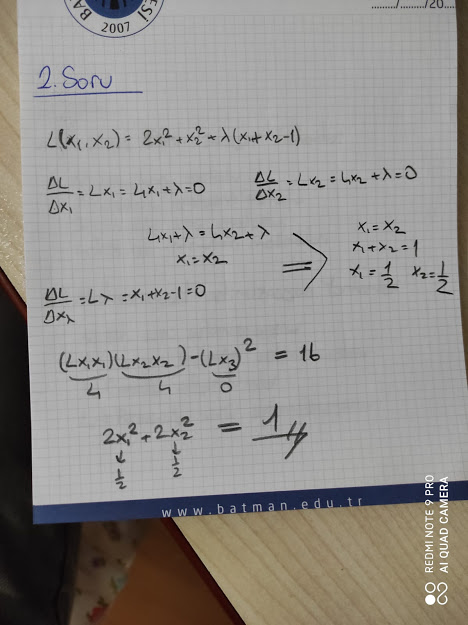 BA
ESİ
2007
........./........./20....
2. Soru
L(x₁,x₂) = 2x₁²+x₂²+λ(x₁+x₂-1)
ΔL/Δx₁ = Lx₁ = 4x₁+λ=0 ΔL/Δx₂ = Lx₂ = 4x₂+λ=0
4x₁+λ = 4x₂+λ
x₁=x₂
x₁=x₂
x₁+x₂=1
x₁=1/2 x₂=1/2
ΔL/Δxλ = Lλ = x₁+x₂-1=0
(Lx₁x₁)(Lx₂x₂)-(Lx₃)² = 16
4 4 0
2x₁²+2x₂² = 1
↓ ↓
1/2 1/2
www.batman.edu.tr
REDMI NOTE 9 PRO
AI QUAD CAMERA